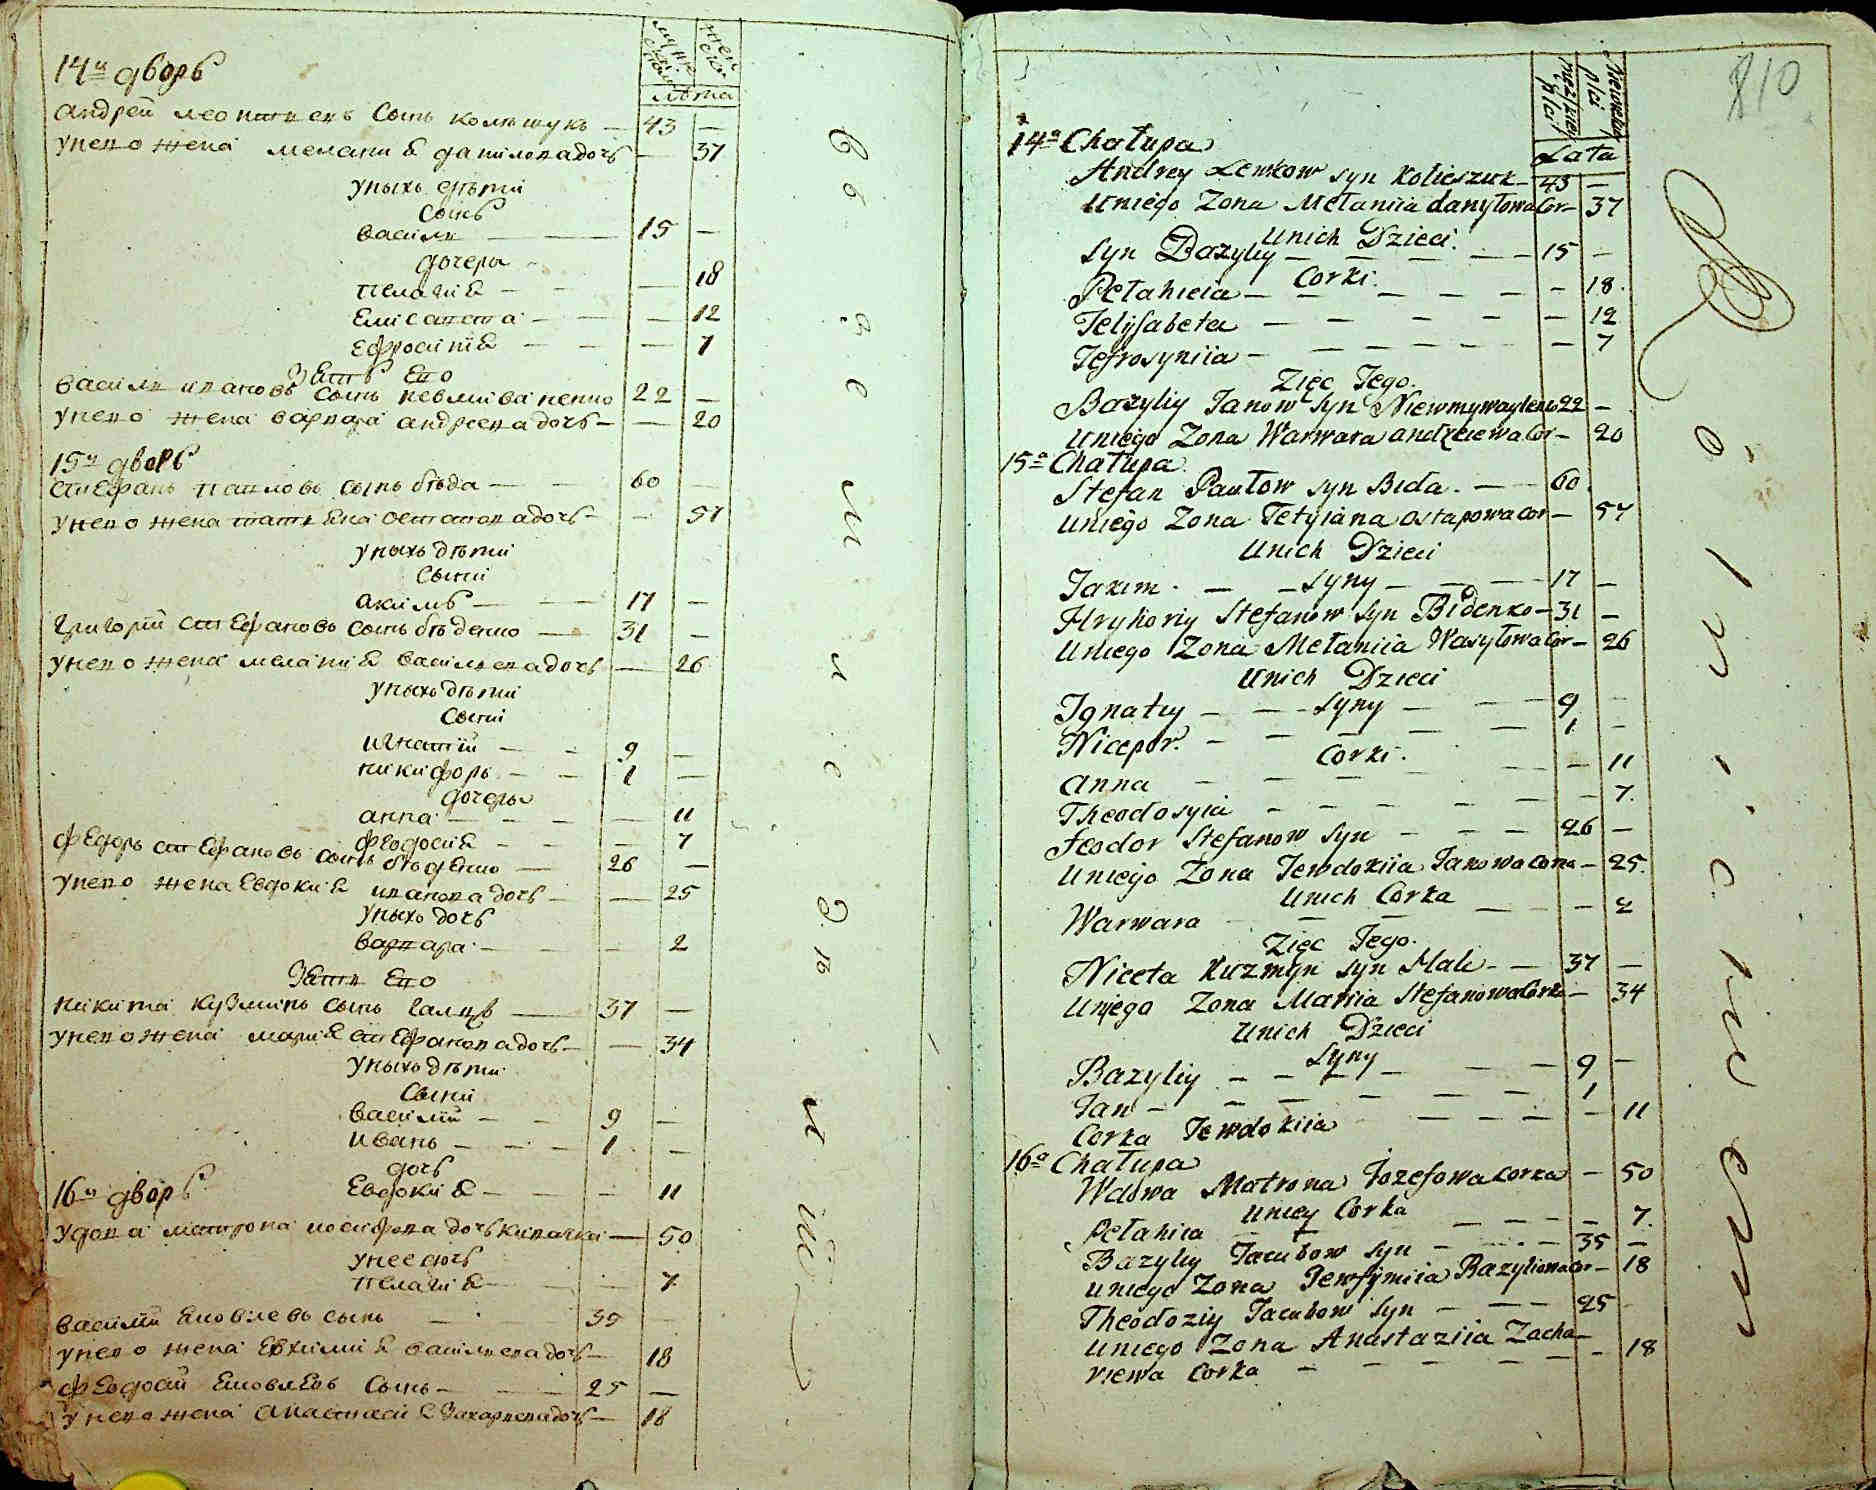 лѣта
14й дворъ
Андрей Леонтиевъ сынъ 43 —
у него жена Мелания Данилова дочь — 37
у ныхъ дѣти
сынъ
Василь — 15 —
дочеры
Пелагия — 18
Елисавета — 12
Ефросиния — 7
Зять его
Василь Ивановъ сынъ 22 —
у него жена Варвара Андреева дочь — 20
15й дворъ
Стефанъ Павловъ сынъ Бѣда — 60 —
у него жена Татияна Остапова дочь — 57
у ныхъ дѣти
сыни
Акимъ — 17 —
Григорий Стефановъ сынъ Бѣденко — 31 —
у него жена Мелания Василиева дочь — 26
у ныхъ дѣти
сыни
Игнатий — 9 —
Никифоръ — 1 —
дочеры
Анна — 11
Феодосия — 7
Федоръ Стефановъ сынъ Бѣденко — 26 —
у него жена Евдокия Иванова дочь — 25
у ныхъ дочь
Варвара — 2
Зять его
Никита Кузминъ сынъ — 37 —
у него жена Мария Стефанова дочь — 34
у ныхъ дѣти
сыни
Василий — 9 —
Иванъ — 1 —
дочь
Евдокия — 11
16й дворъ
Удова Матрона Иосифова дочь — 50
у нее дочь
Пелагия — 7
Василий Яковлевъ сынъ — 35 —
у него жена Евхимия Василиева дочь — 18
Феодосий Яковлевъ сынъ — 25 —
у него жена Анастасия Захариева дочь — 18
810
męzkiey płci
Niewieściey płci
Lata
14a Chałupa
Andrey Lewkow syn Kolieszuk — 43 —
u niego Zona Mełaniia Danyłowa Cor — 37
u nich Dzieci
syn Bazyliy — 15 —
Corki
Pełahieia — 18
Jelysabeta — 12
Jefrosyniia — 7
Zięc Jego
Bazyliy Janow syn Niewmywaylenko 22 —
u niego Zona Warwara Andrzeiewa Cor — 20
15a Chałupa
Stefan Pawłow syn Bida — 60
u niego Zona Tetyiana Ostapowa Cor — 57
u nich Dzieci
Jakim — syny — 17 —
Hryhoriy Stefanow syn Bidenko — 31 —
u niego Zona Mełaniia Wasyłowa Cor — 26
u nich Dzieci
Ignatiy — syny — 9 —
Nicepor — 1 —
Corki
Anna — 11
Theodosyia — 7
Feodor Stefanow syn — 26 —
u niego Zona Jewdokiia Janowa Corka — 25
u nich Corka
Warwara — 2
Zięc Jego
Niceta Kuzmyn syn Hale — 37 —
u niego Zona Mariia Stefanowa Corka — 34
u nich Dzieci
syny
Bazyliy — 9 —
Jan — 1
Corka Jewdokiia — 11
16a Chałupa
Wdowa Matrona Jozefowa Corka — 50
u niey Corka
Pełahiia — 7
Bazyliy Jacubow syn — 35 —
u niego Zona Jewfymiia Bazyliowa Cor — 18
Theodoziy Jacubow syn — 25
u niego Zona Anastaziia Zacha-
riewa Corka — 18